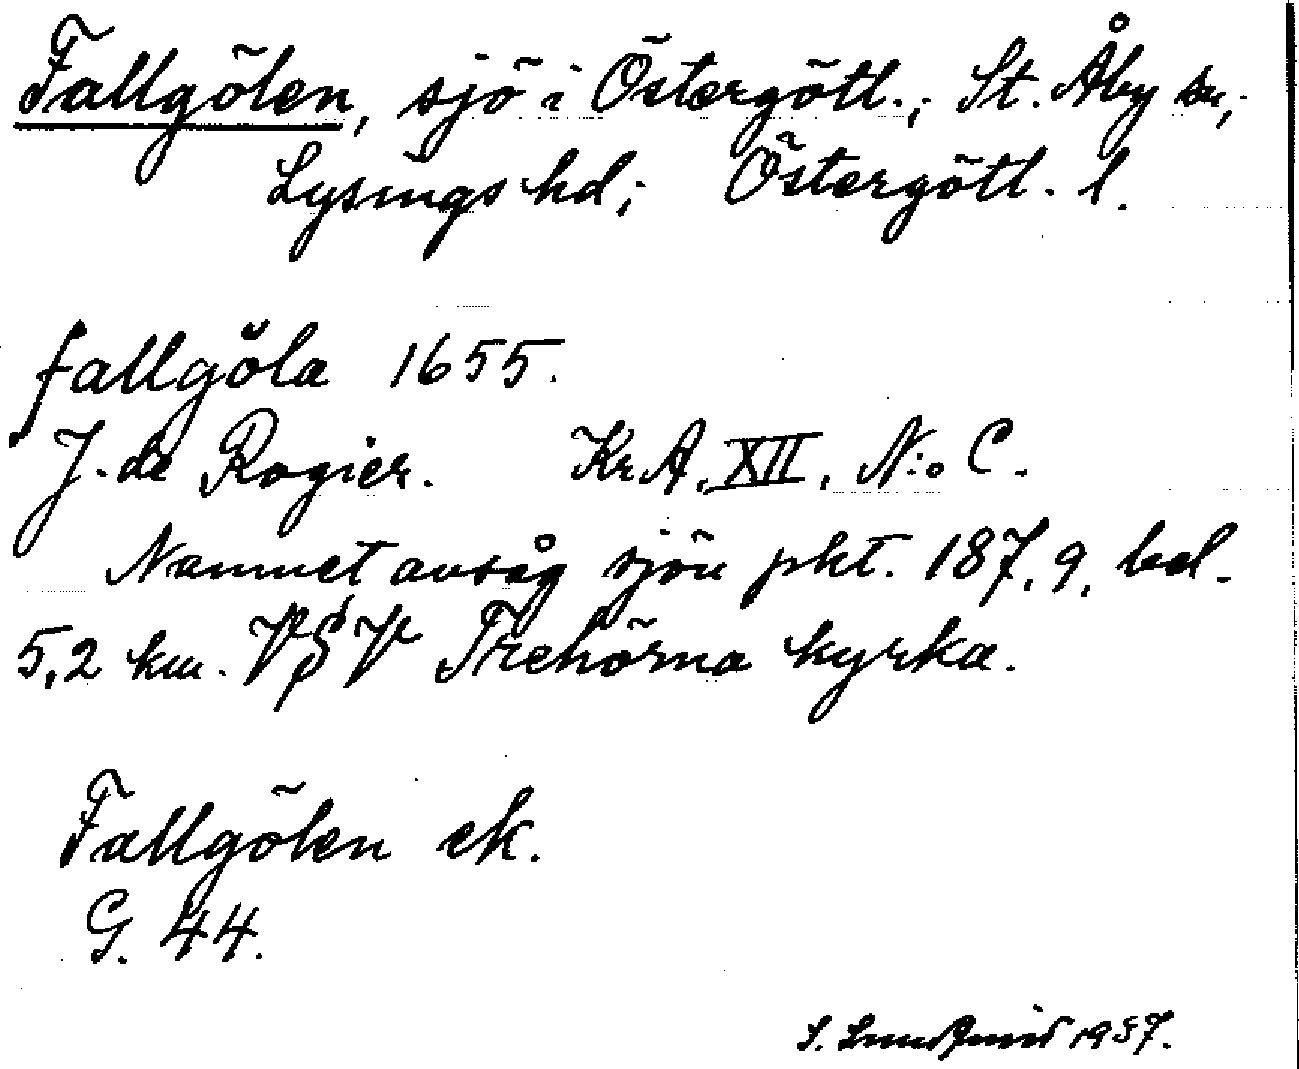 Fallgölen, sjö i Östergötl.; St. Åby sn;
Lysings hd; Östergötl. l.
fallgöla 1655.
J. de Rogier. KrA, XII, N:o C.
Namnet avsåg sjön pkt. 187,9, bel.
5,2 km. VSV Trehörna kyrka.
Fallgölen ek.
G. 44.
S. Lundqvist 1937.